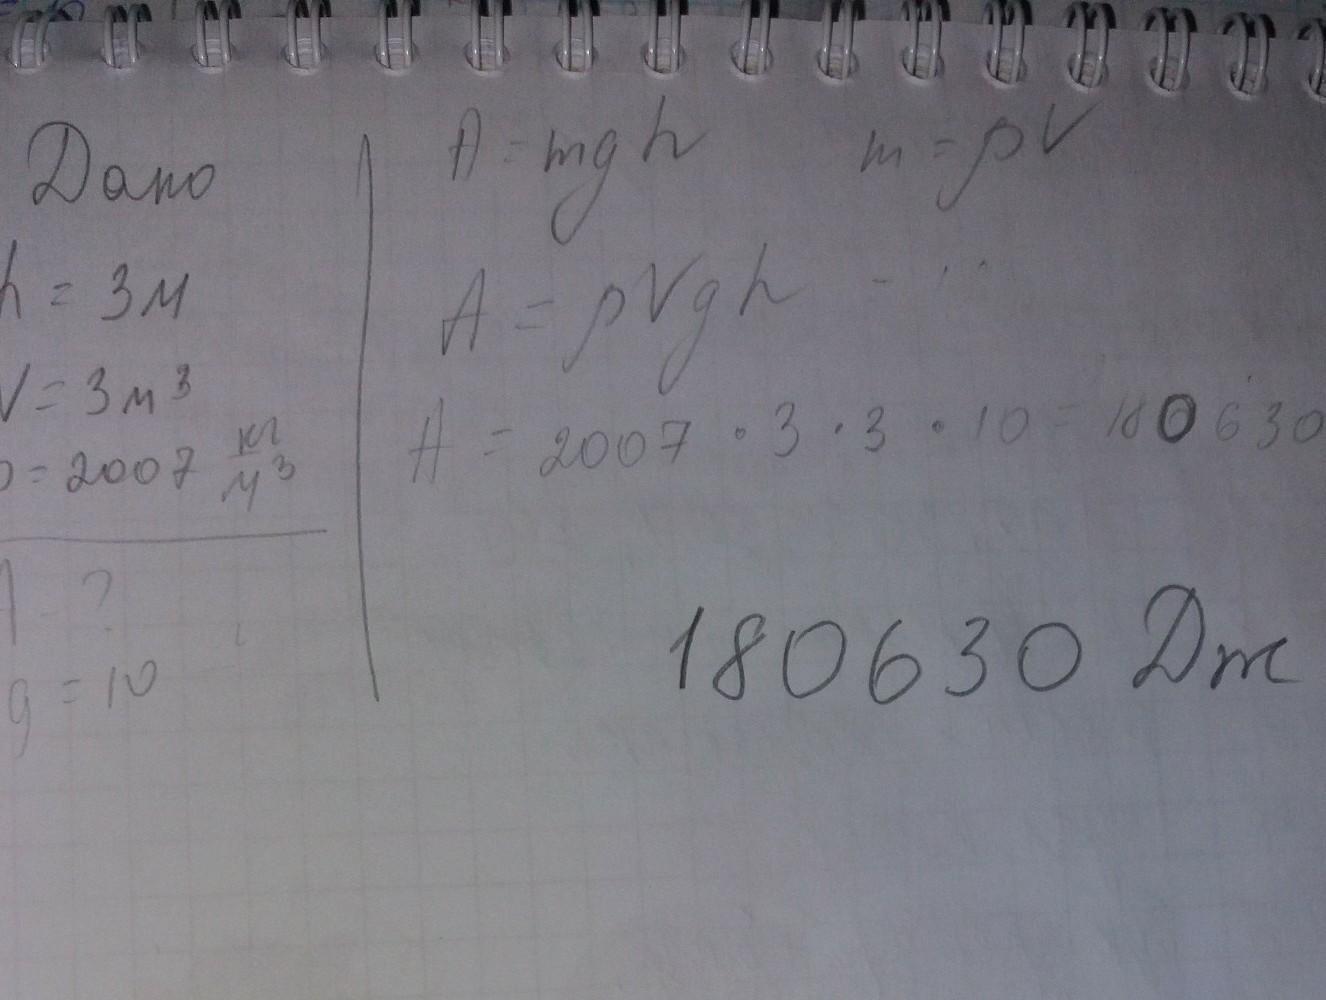 Дано
h = 3м
V = 3м³
ρ = 2007 кг/м³
A - ?
g = 10
A = mgh   m = ρV
A = ρVgh
A = 2007 · 3 · 3 · 10 = 180630
180630 Дж